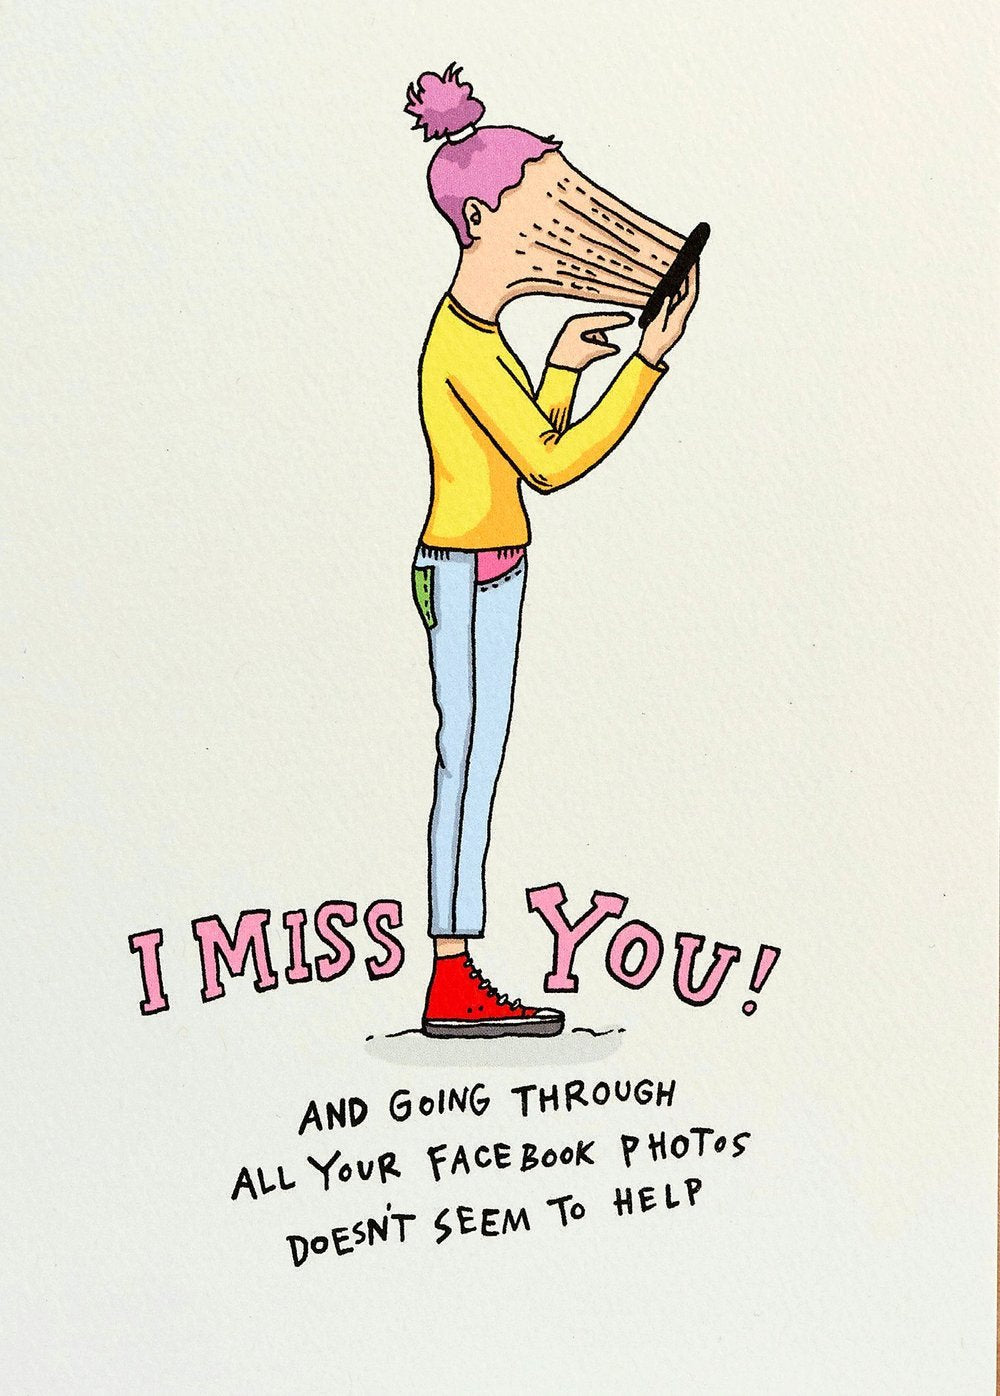 I MISS YOU!
AND GOING THROUGH
ALL YOUR FACEBOOK PHOTOS
DOESN'T SEEM TO HELP